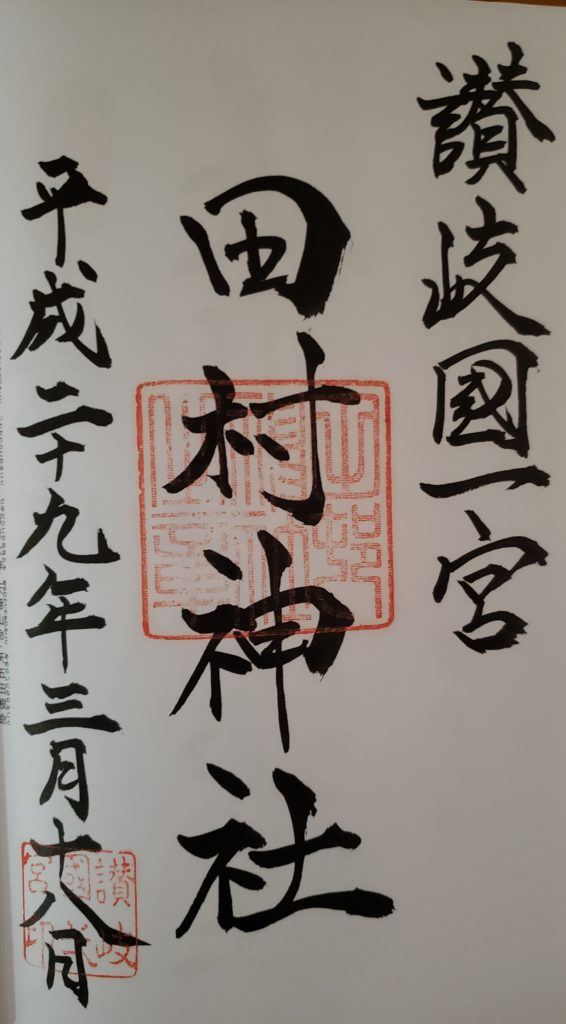 讃岐國一宮
田村神社
平成二十九年三月十八日
讃岐
國弌
宮印